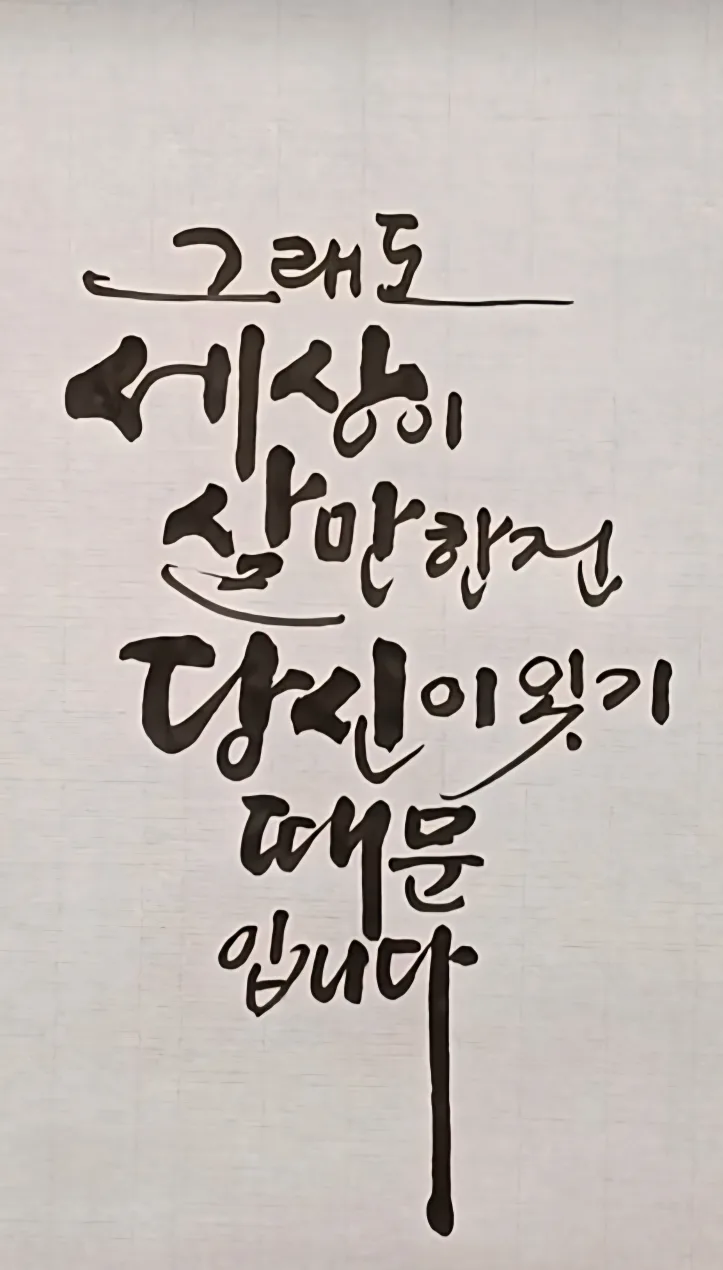 그래도
세상이
살만한건
당신이 있기
때문
입니다